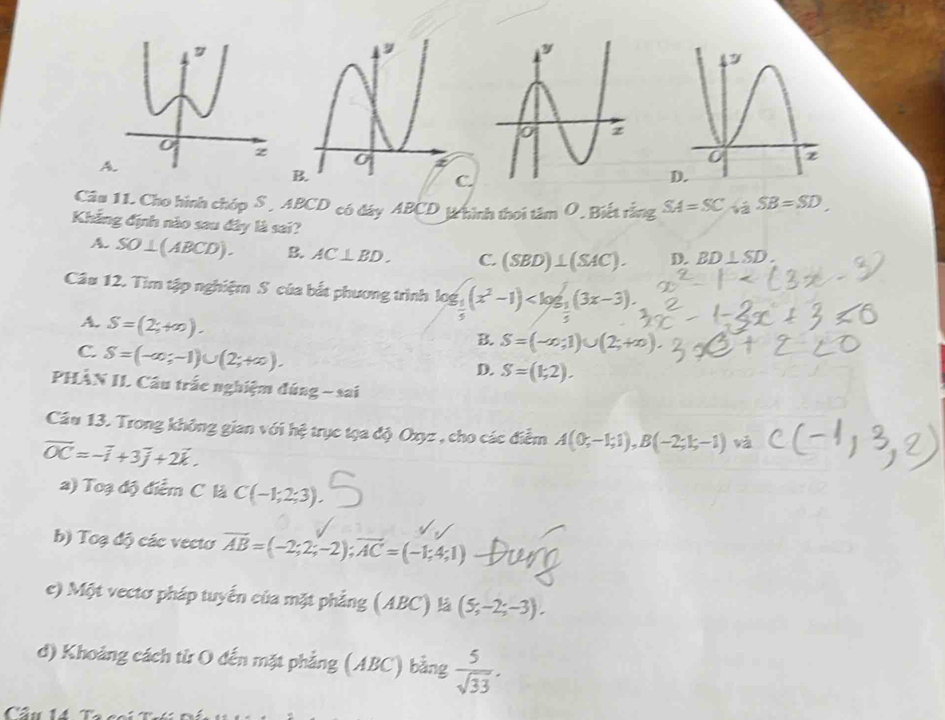 y y y y
O x O x O x O x
A. B. C. D.
Câu 11. Cho hình chóp S . ABCD có đáy ABCD là hình thoi tâm O. Biết rằng SA = SC và SB = SD.
Khẳng định nào sau đây là sai?
A. SO ⊥ (ABCD). B. AC ⊥ BD. C. (SBD) ⊥ (SAC). D. BD ⊥ SD.
x² - 1 < (3x - 3)
Câu 12. Tìm tập nghiệm S của bất phương trình log_{1/5}(x² - 1) < log_{1/5}(3x - 3).
x² - 1 - 3x + 3 < 0
A. S = (2; +∞). B. S = (-∞; 1) ∪ (2; +∞).
+ 2 < 0
C. S = (-∞; -1) ∪ (2; +∞). D. S = (1; 2).
PHẦN II. Câu trắc nghiệm đúng – sai
Câu 13. Trong không gian với hệ trục tọa độ Oxyz, cho các điểm A(0; -1; 1), B(-2; 1; -1) và C(-1, 3, 2)
\overrightarrow{OC} = -\vec{i} + 3\vec{j} + 2\vec{k}.
a) Toạ độ điểm C là C(-1; 2; 3). S
b) Toạ độ các vectơ \overrightarrow{AB} = (-2; 2; -2); \overrightarrow{AC} = (-1; 4; 1) Đúng
c) Một vectơ pháp tuyến của mặt phẳng (ABC) là (5; -2; -3).
d) Khoảng cách từ O đến mặt phẳng (ABC) bằng 5/√33.
Câu 14. Ta coi